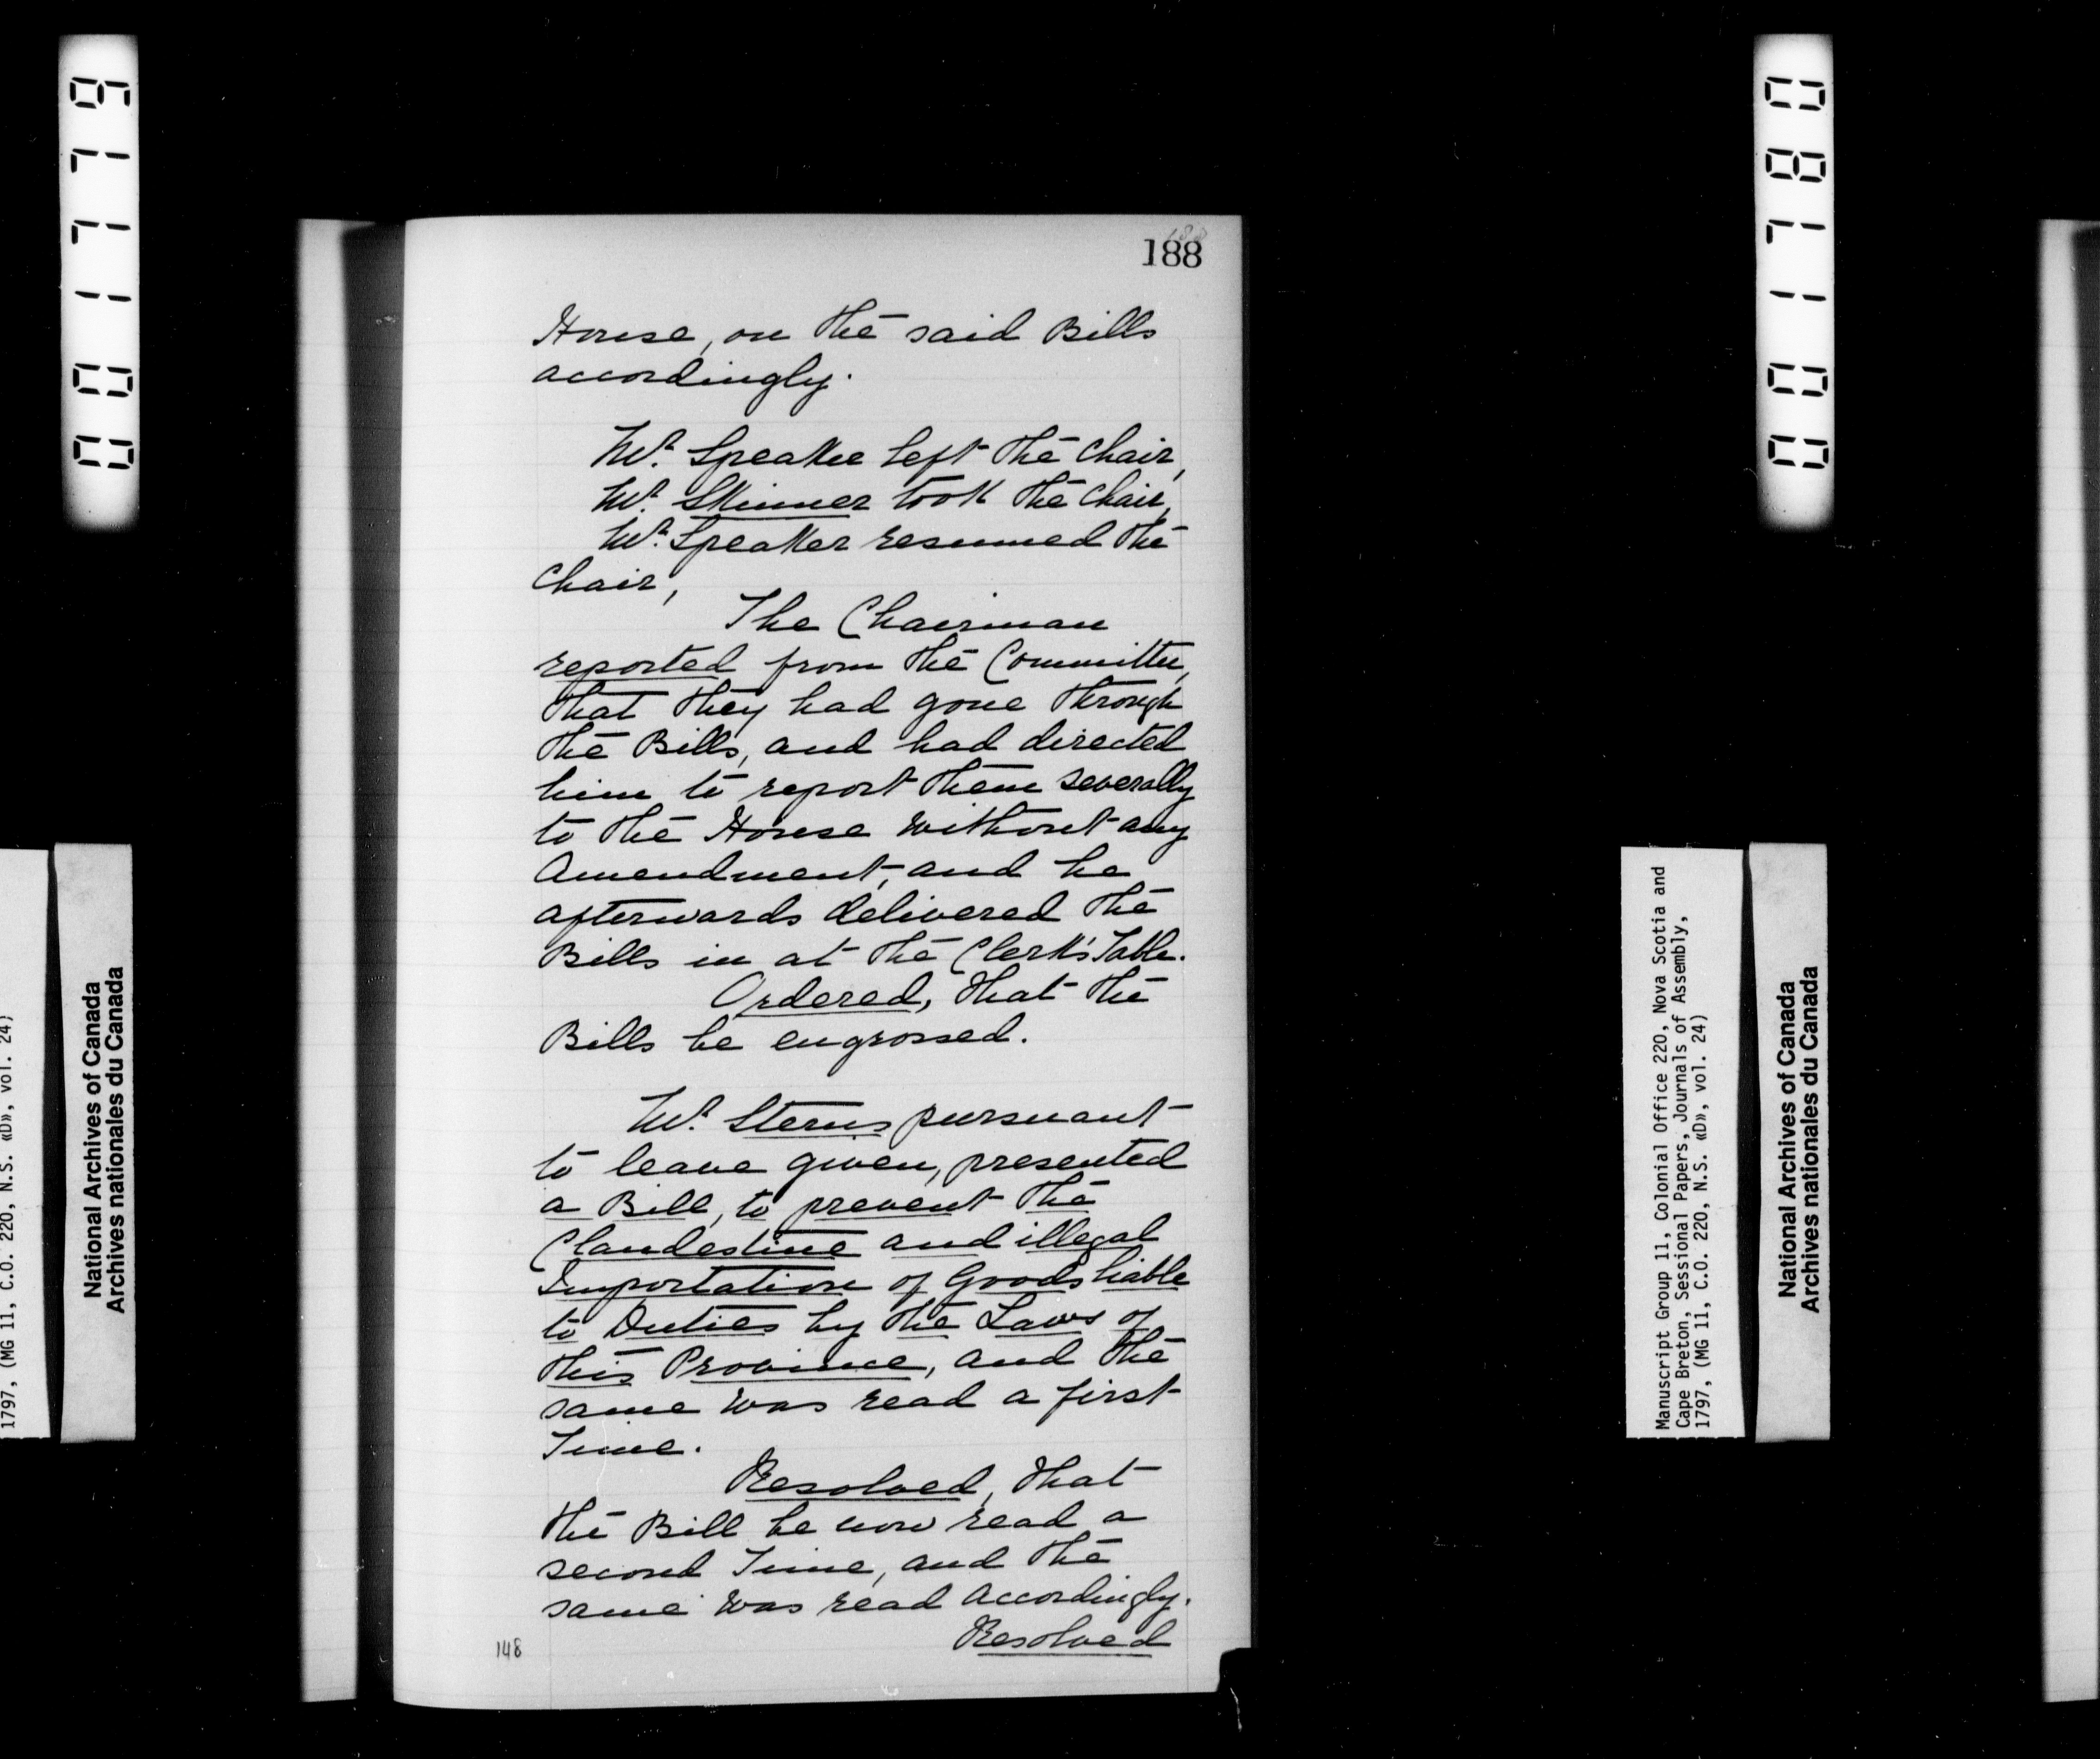 001779
188
House, on the said Bills
accordingly.
Mr. Speaker left the Chair,
Mr. Skinner took the Chair,
Mr. Speaker resumed the
Chair,
The Chairman
reported from the Committee,
that they had gone through
the Bills, and had directed
him to report them severally
to the House without any
Amendment, and he
afterwards delivered the
Bills in at the Clerk's Table.
Ordered, that the
Bills be engrossed.
Mr. Sterns pursuant
to leave given, presented
a Bill, to prevent the
Clandestine and illegal
Importation of Goods liable
to Duties by the Laws of
this Province, and the
same was read a first
Time.
Resolved, that
the Bill be now read a
second Time, and the
same was read accordingly.
Resolved
148
1797, (MG 11, C.O. 220, N.S. «D», vol. 24)
National Archives of Canada
Archives nationales du Canada
001780
Manuscript Group 11, Colonial Office 220, Nova Scotia and
Cape Breton, Sessional Papers, Journals of Assembly,
1797, (MG 11, C.O. 220, N.S. «D», vol. 24)
National Archives of Canada
Archives nationales du Canada